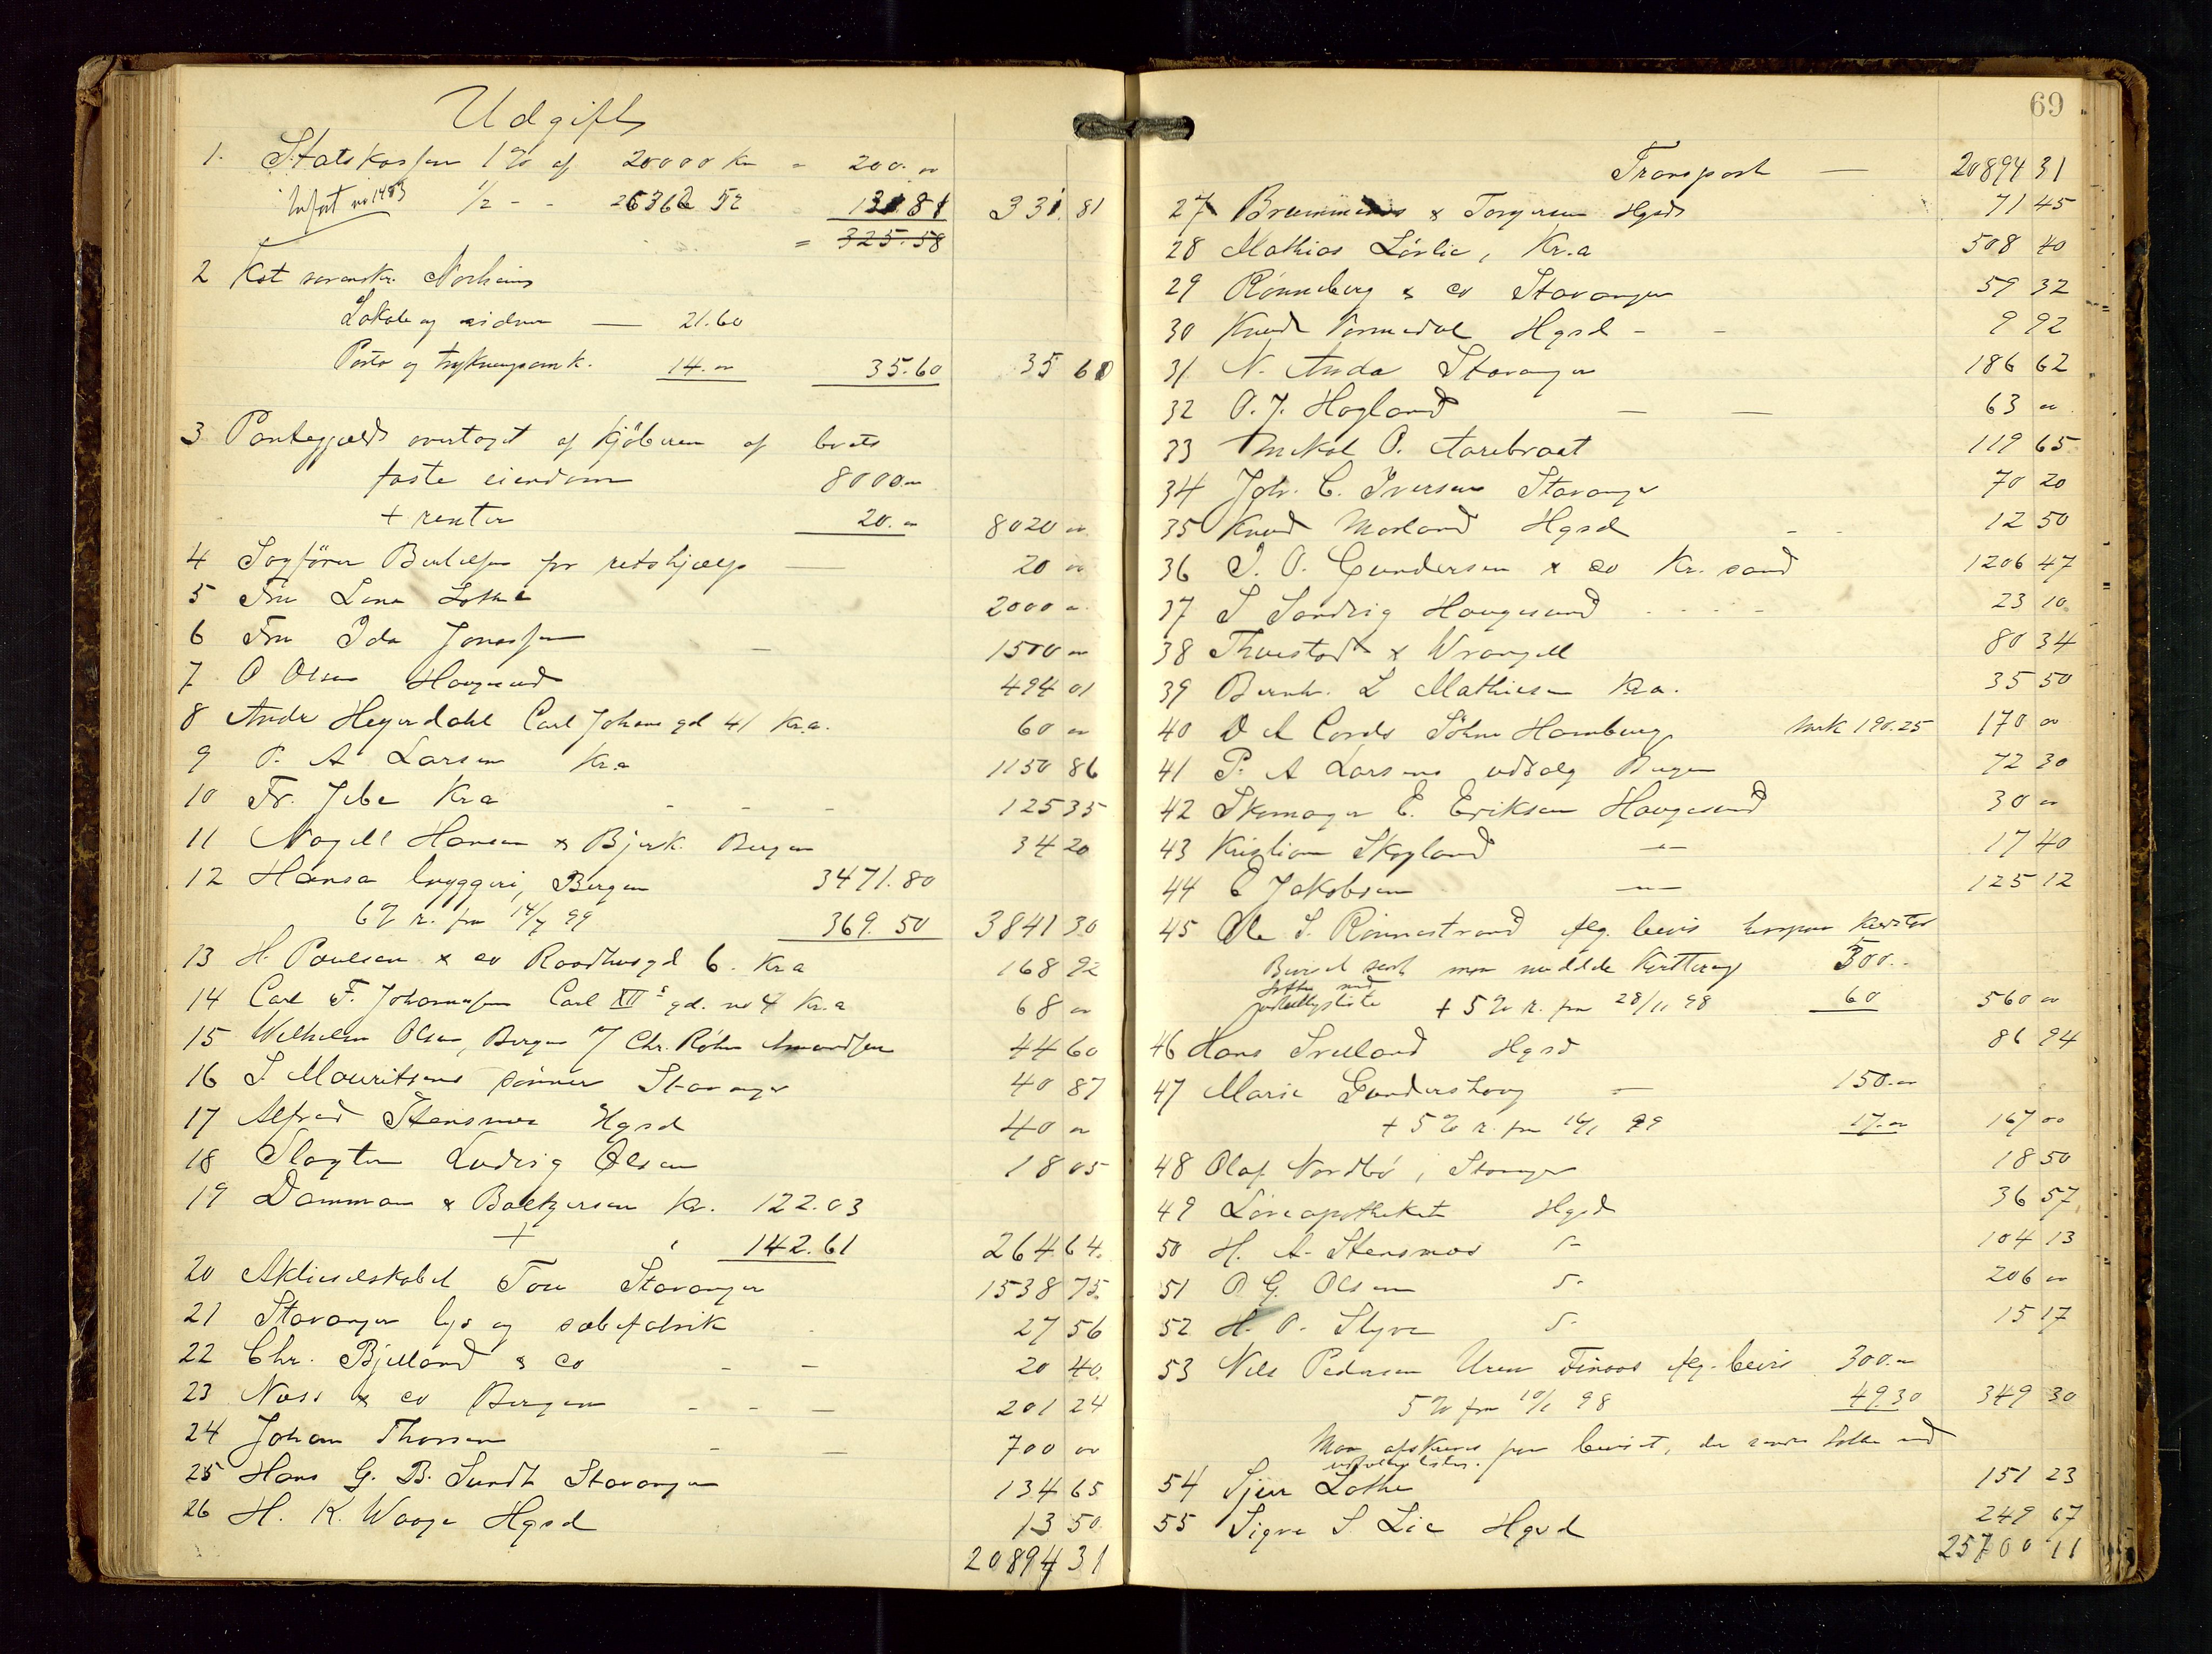 Udgift
1. Statskassen 1% af 20000 Kr = 200. "
Indført no 1483 1/2 - - 26362 52 131.81 331. 81
= 325.58
2 Kst
Lokale og — 21.60
Porto og 14. " 35.60 35 60
3 Pantegjæld overtaget af Kjöberen af boets
faste eiendom 8000 "
+ renter 20. " 8020 "
4 Sagförer Bertelsen for retshjælp — 20 "
5 Fru Lina Lothe 2000 "
6 Fru Ida Jonassen — 1500 "
7 O Olsen Haugesund 494 01
8 Andr Heyerdahl Carl Johans gd 41 Kr.a. 60 "
9 P. A Larsen Kr.a 1150 86
10 Fr. Jebe Kr a - - - 125 35
11 Nagell Hansen & Bjerk. Bergen 34 20
12 Hansa bryggeri, Bergen 3471.80
6% r. fra 14/7 99 369. 50 3841 30
13 H. Poulsen & co Raadhusgd 6. Kr a 168 92
14 Carl F. Johannesen Carl XII s gd. no 4 Kr.a 68 "
15 Wilhelm Olsen, Bergen / Chr. Röhr Amundsen 44 60
16 S. Mauritsens sönner Stavanger 40 87
17 Alfred Stensnes Hgsd 40 "
18 Slagter Ludvig Olsen 18 05
19 Damman & Bolkersen Kr. 122.03
+ 142.61 264 64.
20 Aktieselskabet Tou Stavanger 1538 75.
21 Stavanger lys og sæbefabrik 27 56
22 Chr. Bjelland & Co - - 20 40.
23 Næss & co Bergen - - — 201 24
24 Johan Thorsen - — 700 "
25 Hans G. B. Sundt Stavanger 134 65
26 H. K. Waage Hgsd 13 50
20894 31
69
Transport — 20894 31
27 & Torgersen Hgsd 71 45
28 Mathias Lövlie, Kr.a 508 40
29 Rönneberg & co Stavanger 59 32
30 Knud Vormedal Hgsd - - 9 92
31 N. Anda Stavanger 186 62
32 O. J. Hogland — — 63 "
33 Mikal O. Aarebraat 119 65
34 Joh. C. Iversen Stavanger 70 20
35 Knud Morland Hgsd - - 12 50
36 J. O. Gundersen & co Kr. sand 1206 47
37 S Sandvig Haugesund - - - - 23 10
38 Thuestad & Wrangell 80 34
39 Bernh. L Mathiesen Kra. 35 50
40 D A Cords Söhne Hamburg. Mrk 190.25 170 "
41 P. A Larsens udsalg Bergen 72 30
42 Skomager E. Eriksen Haugesund 30 "
43 Kristian Skogland — " — 17 40
44 E Jakobsen — " — 125 12
45 Ole S. Rönnestrand
500. "
+ 5% r. fra 28/11 98 60 560 "
46 Hans Sveland Hgsd 86 94
47 Marie Gundershaug — 150. "
+ 5% r. fra 16/1 99 17. " 167 00
48 Olaf Nordbö, Stavanger 18 50
49 Löveapotheket Hgsd 36 57
50 H. A. Stensnes S- 104 13
51 O G. Olsen S- 206 "
52 H. O. Styve S- 15 17
53 Nils Pedersen Uren Finaas bevis 300. "
5% fra 10/1 98 49 30 349 30
Maa afskrives paa beviset,
54 Sjur Lothe 151 23
55 Sigva S Lie Hgsd 249 67
25700 11